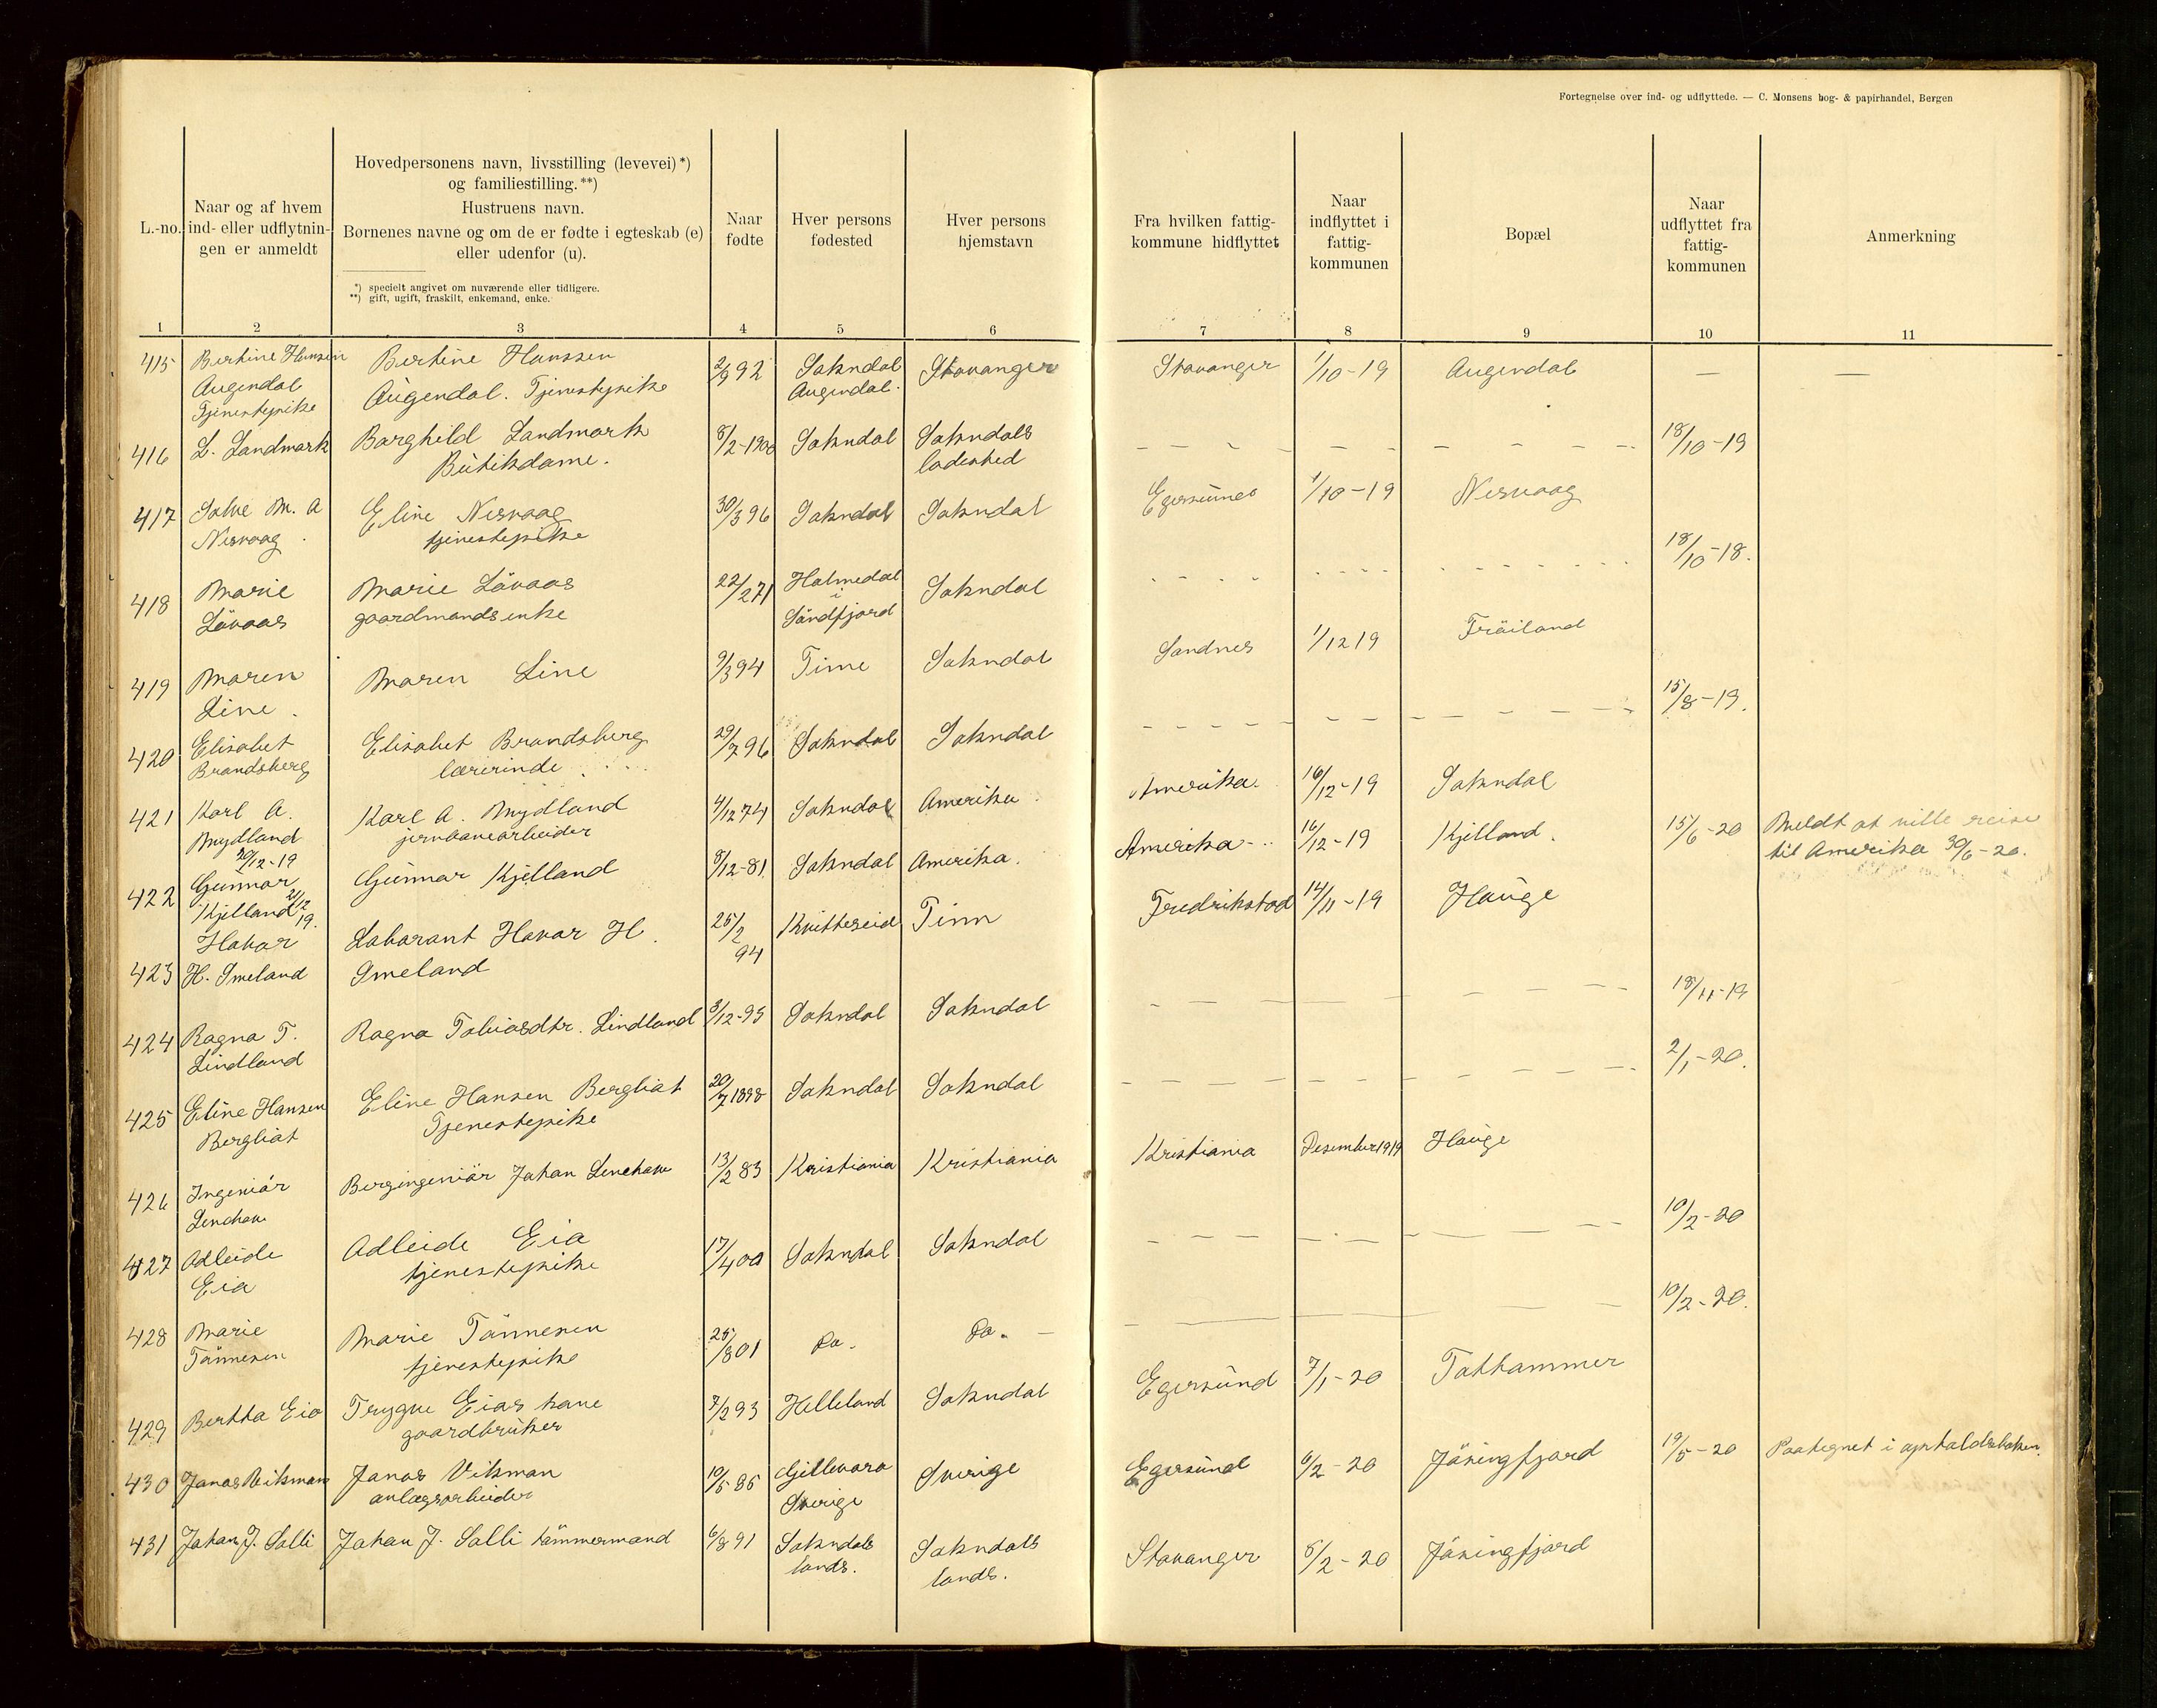 Fortegnelse over ind- og udflyttede. — C. Monsens bog- & papirhandel, Bergen
L.-no.
Naar og af hvem
ind- eller udflytnin-
gen er anmeldt
Hovedpersonens navn, livsstilling (levevei)*)
og familiestilling.**)
Hustruens navn.
Børnenes navne og om de er fødte i egteskab (e)
eller udenfor (u).
*) specielt angivet om nuværende eller tidligere.
**) gift, ugift, fraskilt, enkemand, enke.
Naar
fødte
Hver persons
fødested
Hver persons
hjemstavn
Fra hvilken fattig-
kommune hidflyttet
Naar
indflyttet i
fattig-
kommunen
Bopæl
Naar
udflyttet fra
fattig-
kommunen
Anmerkning
1 2 3 4 5 6 7 8 9 10 11
415 Bertine Hansen Bertine Hanssen 2/9 92 Sokndal Stavanger Stavanger 1/10-19 Augendal — —
Augendal Augendal. Tjenestepike Augendal.
Tjenestepike
416 L. Landmark Borghild Landmark 8/2-1900 Sokndal Sokndals 18/10-19
Butikdame. ladested
417 Salve M. A Eline Nesvaag 30/3 96 Sokndal Sokndal Egersund 1/10-19 Nesvaag
Nesvaag. tjenestepike
418 Marie Marie Lövaas 22/2 71 Holmedal Sokndal 18/10-18.
Lövaas gaardmandsenke i
Söndfjord
419 Maren Maren Line 9/3 94 Time Sokndal Sandnes 1/12 19 Fröiland
Line.
420 Elisabet Elisabet Brandsberg 29/7 96 Sokndal Sokndal 15/8-19.
Brandsberg lærerinde
421 Karl A. Karl A. Mydland 4/12 74 Sokndal Amerika. Amerika. 16/12-19 Sokndal
Mydland jernbanearbeider
20/12-19
422 Gunnar Gunnar Kjelland 8/12-81 Sokndal Amerika. Amerika 16/12-19 Kjelland. 15/6-20 Meldt at ville reise
Kjelland 21/12 19. til Amerika 30/6-20.
Havar Laborant Havar H. 25/2 94 Kvitteseid Tinn Fredrikstad 14/11-19 Hauge
423 H. Smeland Smeland
424 Ragna T. Ragna Tobiasdtr. Lindland 3/12-95 Sokndal Sokndal 18/11-19
Lindland
425 Eline Hansen Eline Hansen Bergliat 20/7 1898 Sokndal Sokndal 2/1-20.
Bergliat Tjenestepike
426 Ingeniör Bergingeniör Johan 13/2 83 Kristiania Kristiania Kristiania Desember 1919 Hauge
427 Adleide Adleide Eia 17/4 00 Sokndal Sokndal 10/2-20
Eia tjenestepike
428 Marie Marie Tönnesen 25/8 01 Do. Do. 10/2-20.
Tönnesen tjenestepike
429 Bertha Eia Trygve Eias kone 7/2 93 Helleland Sokndal Egersund 7/1-20 Tothammer
gaardbruker
430 Jonas Vikman Jonas Vikman 10/5 86 Gjellevara Sverige Egersund 6/2-20 Jösingfjord 19/5-20 Paategnet i opholdsboken.
anlægsarbeider Sverige
431 Johan J. Salli Johan J. Salli tömmermand 6/8 91 Sokndals Sokndals Stavanger 8/2-20 Jösingfjord
lands. lands.